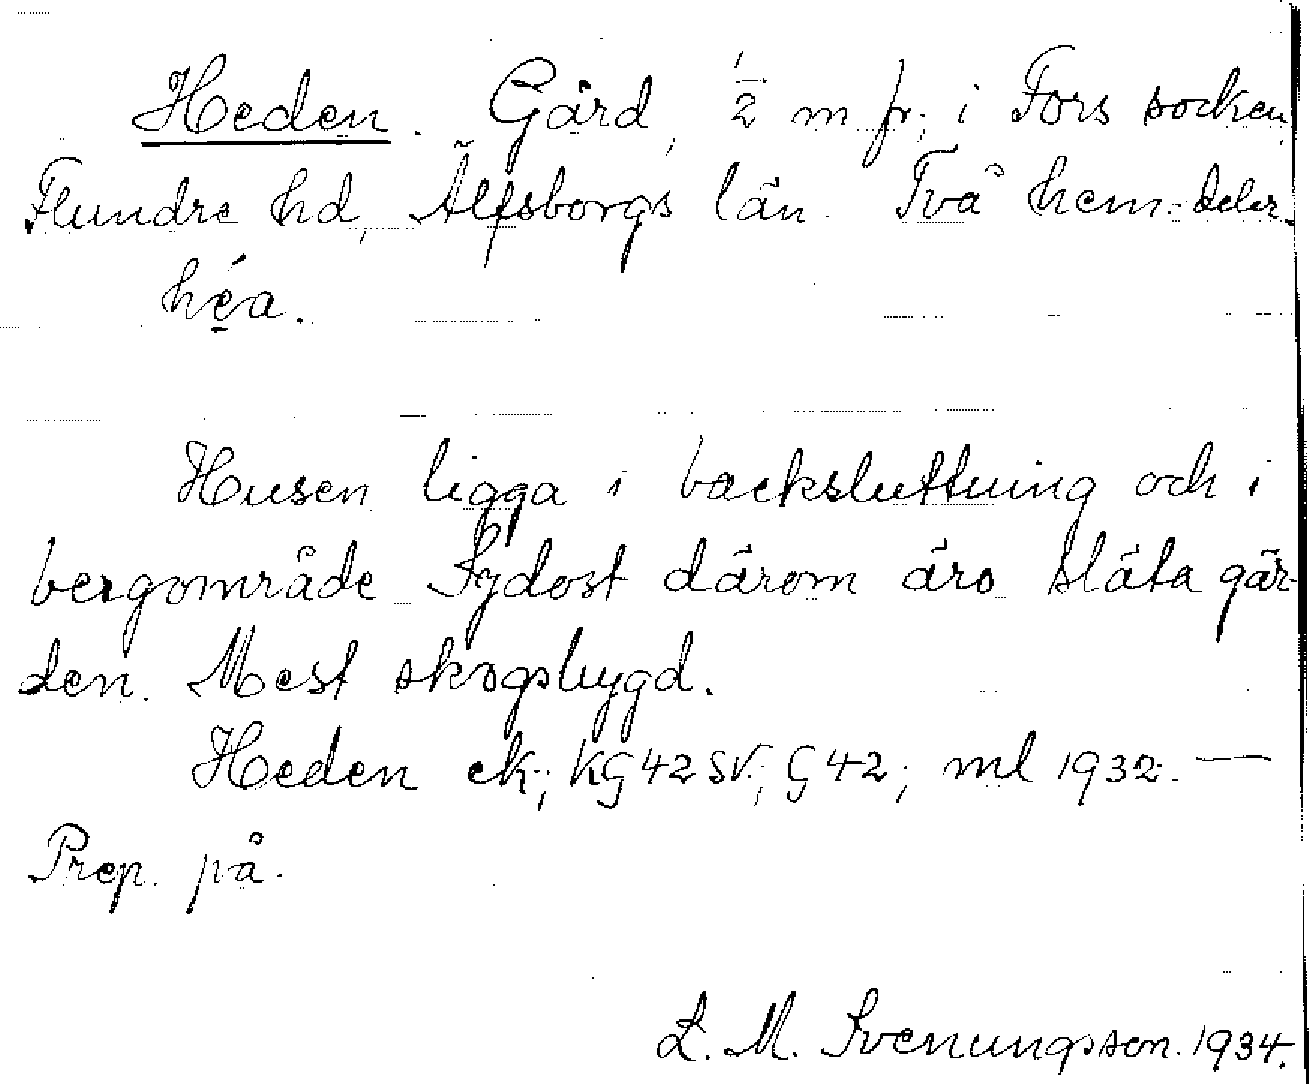 Heden. Gård, ½ m fr, i Fors socken,
Flundre hd, Älfsborgs län. Två hem. delar.
héa.
Husen ligga i backsluttning och i
bergområde. Sydost därom äro släta gär-
den. Mest skogsbygd.
Heden ek; KG 42 SV; G 42; ml 1932. —
Prep. på.
L. M. Svenungsson. 1934.